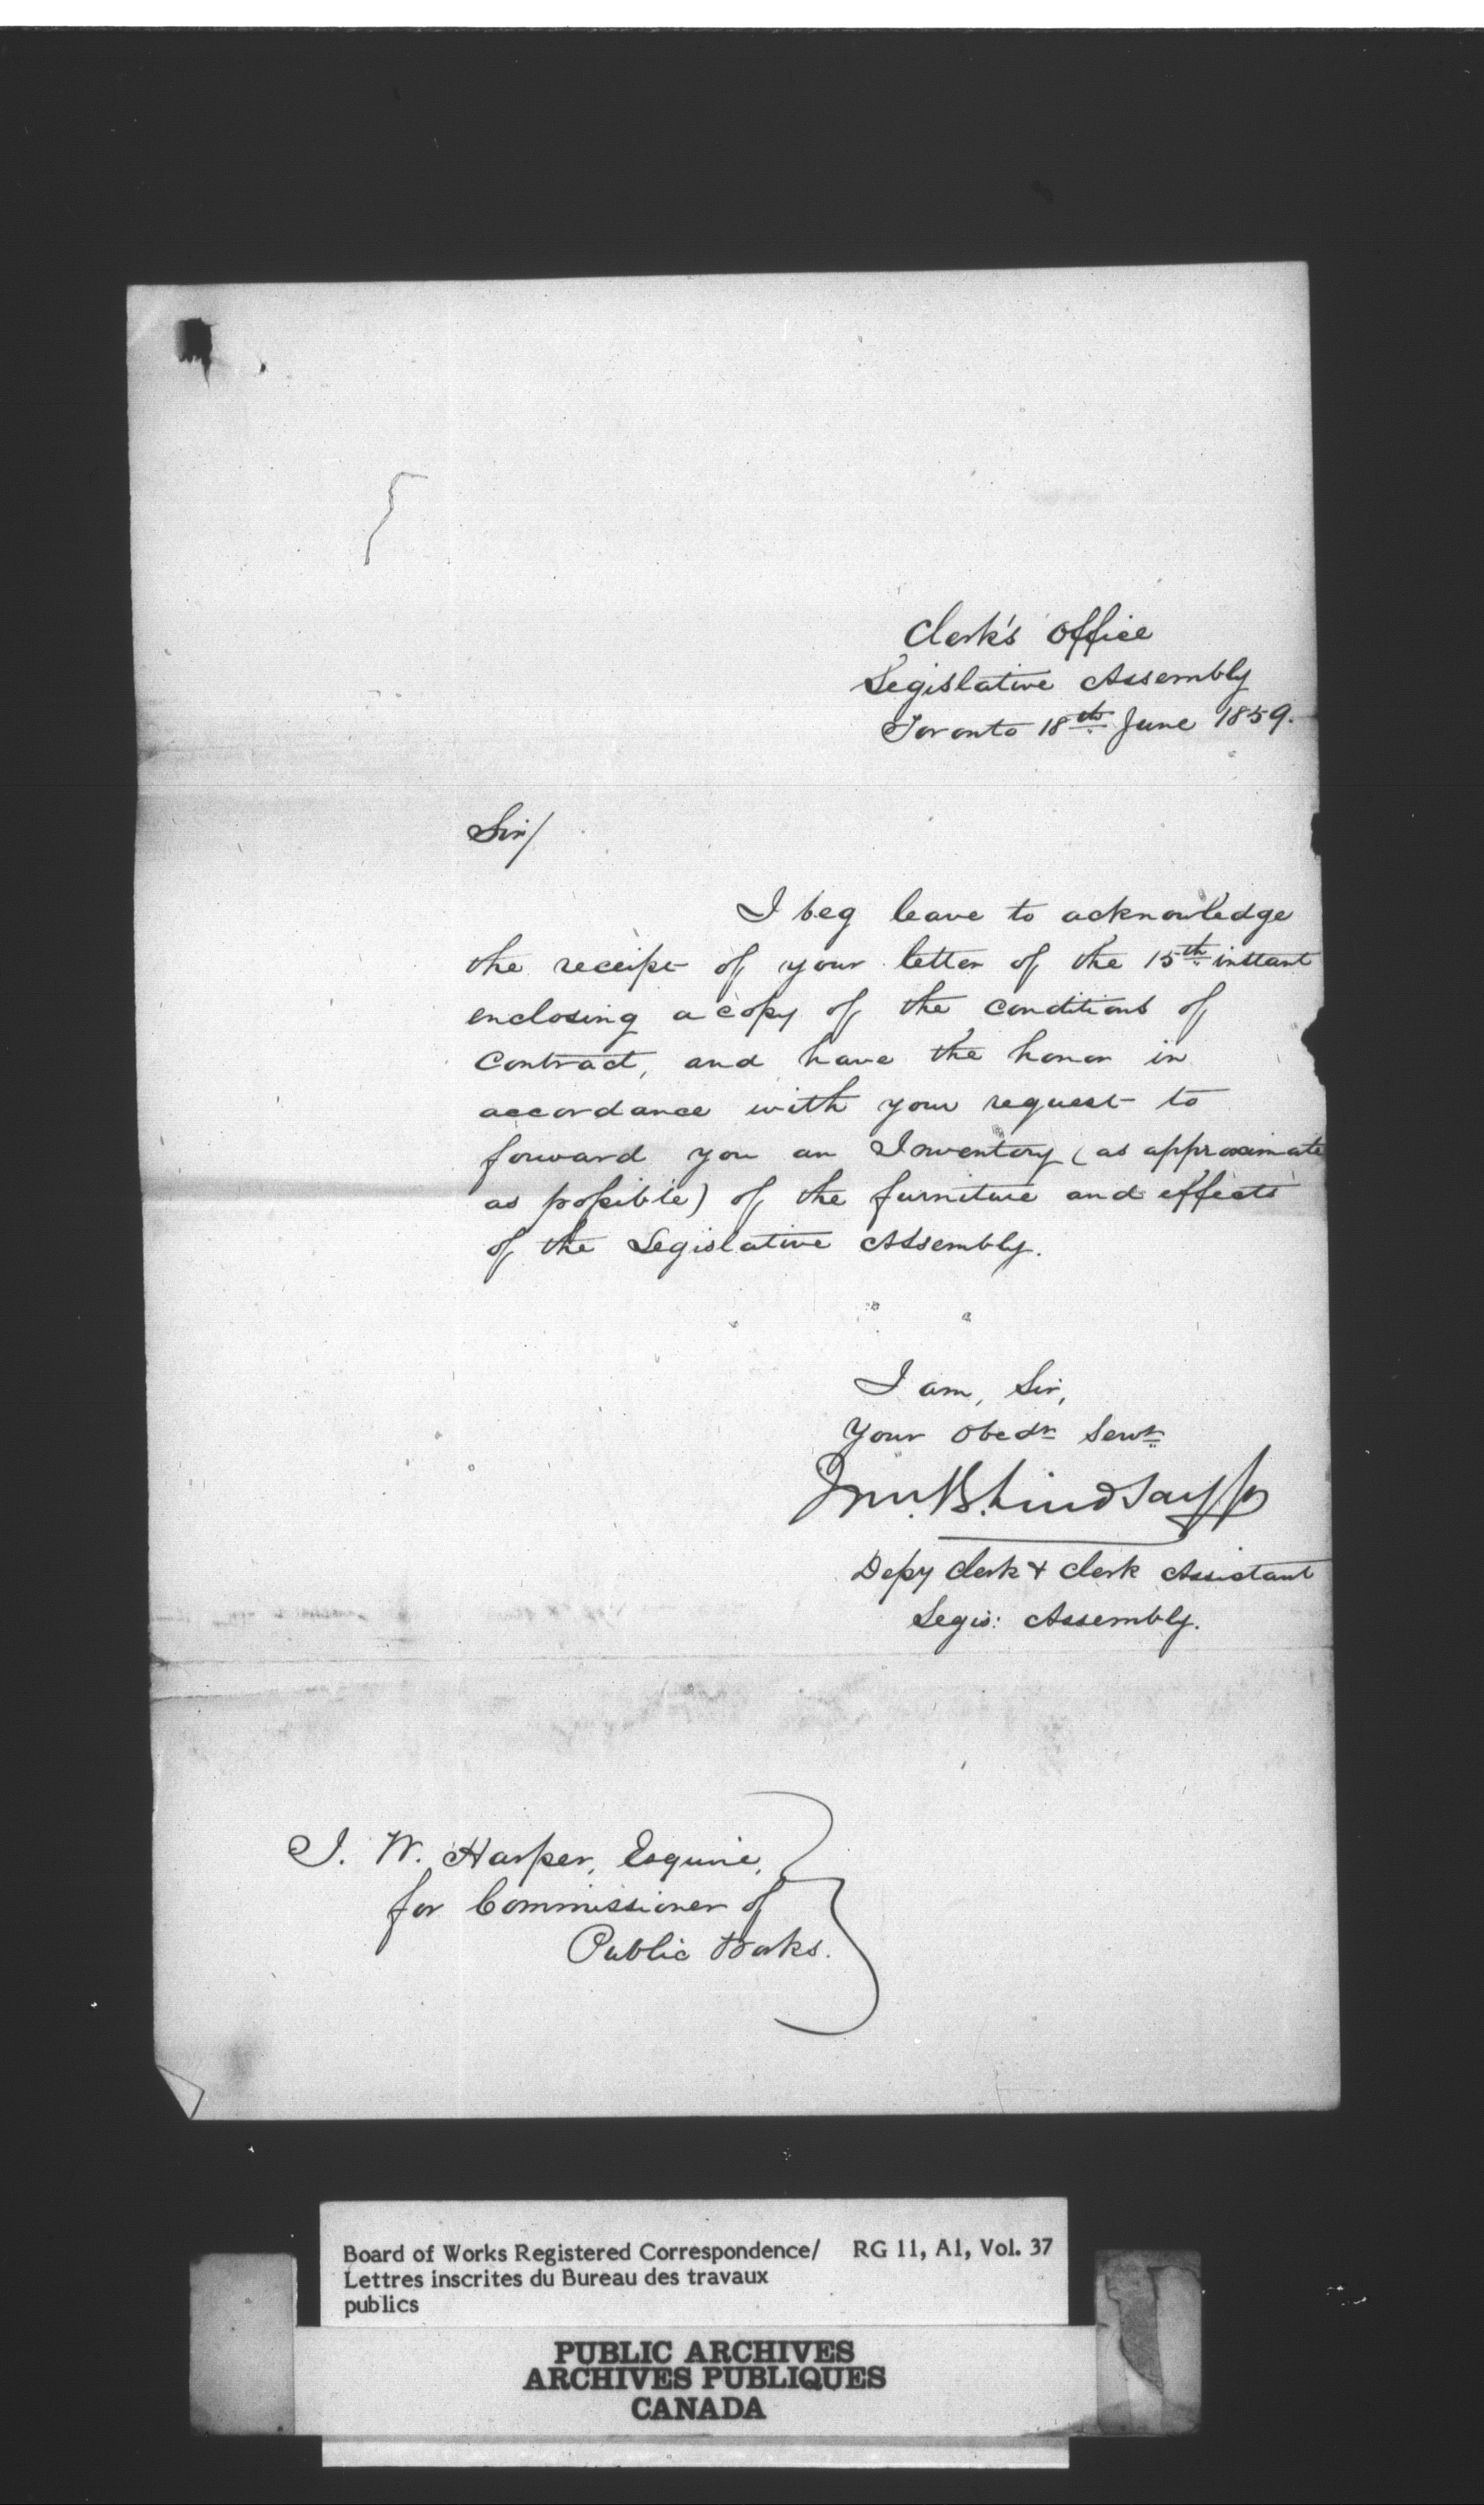 Clerk's Office
Legislative Assembly
Toronto 18th June 1859.
Sir/
I beg leave to acknowledge
the receipt of your letter of the 15th instant
enclosing a copy of the conditions of
Contract, and have the honor in
accordance with your request to
forward you an Inventory (as approximate
as possible) of the furniture and effects
of the Legislative Assembly.
I am, Sir,
Your Obedt Servt
Wm. B. Lindsay Jr
Depy Clerk & Clerk Assistant
Legis: Assembly.
J. W. Harper, Esquire,
for Commissioner of
Public Works.
Board of Works Registered Correspondence/ RG 11, A1, Vol. 37
Lettres inscrites du Bureau des travaux
publics
PUBLIC ARCHIVES
ARCHIVES PUBLIQUES
CANADA